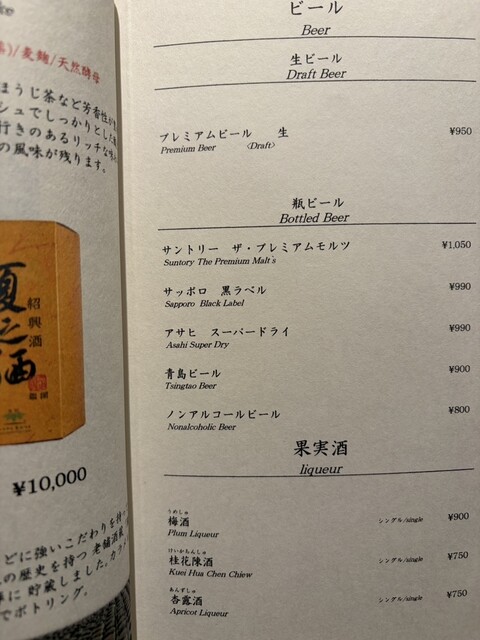 ke
)/麦麹/天然酵母
ほうじ茶など芳香性が
シュでしっかりとした
行きのあるリッチな味
の風味が残ります。
夏之酒
紹興酒
¥10,000
どに強いこだわりを持
の歴史を持つ 老舗酒蔵
に貯蔵しました。カラ
でボトリング。
ビール
Beer
生ビール
Draft Beer
プレミアムビール 生 ¥950
Premium Beer 〈Draft〉
瓶ビール
Bottled Beer
サントリー ザ・プレミアムモルツ ¥1,050
Suntory The Premium Malt's
サッポロ 黒ラベル ¥990
Sapporo Black Label
アサヒ スーパードライ ¥990
Asahi Super Dry
青島ビール ¥900
Tsingtao Beer
ノンアルコールビール ¥800
Nonalcoholic Beer
果実酒
liqueur
うめしゅ
梅酒 シングル/single ¥900
Plum Liqueur
けいかちんしゅ
桂花陳酒 シングル/single ¥750
Kuei Hua Chen Chiew
あんずしゅ
杏露酒 シングル/single ¥750
Apricot Liqueur